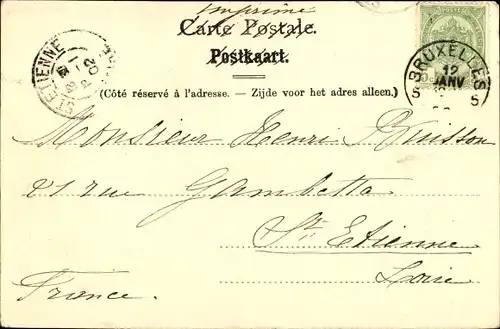 Imprimé
Carte Postale.
Postkaart.
(Côté réservé à l'adresse. – Zijde voor het adres alleen.)
ST ETIENNE
BRUXELLES
12
JANV
5 5
Monsieur Henri
21 rue Gambetta
St Etienne
Loire
France.